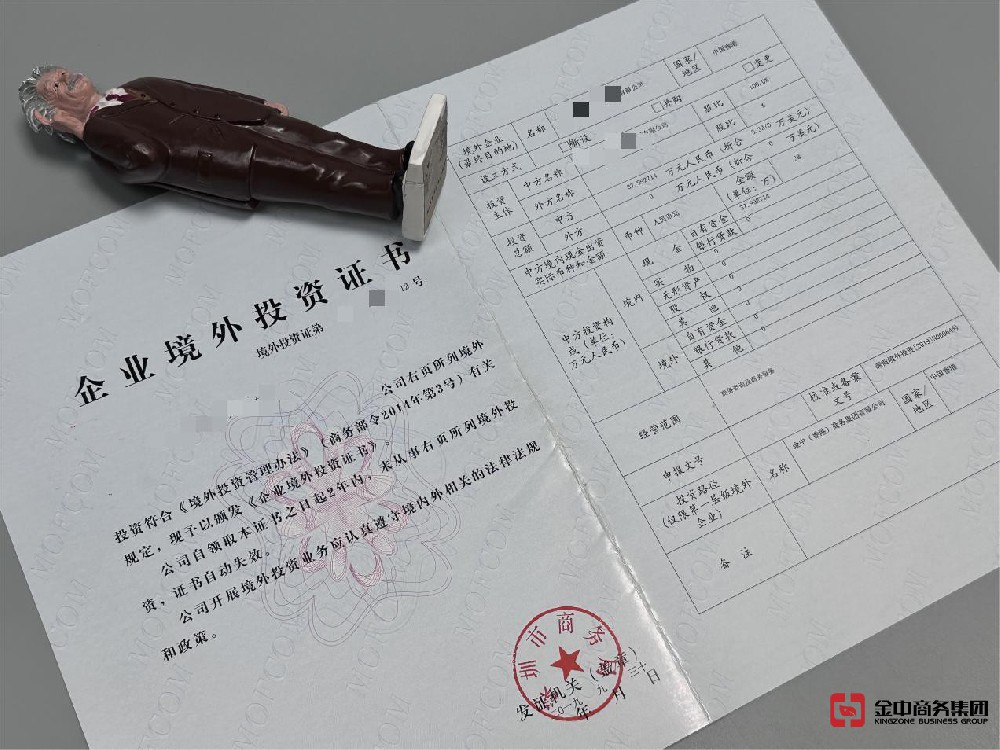 企业境外投资证书
境外投资证第
12 号
公司右页所列境外
投资符合《境外投资管理办法》（商务部令2014年第3号）有关
规定，现予以颁发《企业境外投资证书》。
公司自领取本证书之日起2年内，未从事右页所列境外投
资，证书自动失效。
公司开展境外投资业务应认真遵守境内外相关的法律法规
和政策。
圳市商务
发证机关（盖章）
年 月 日
境外企业
(最终目的地)
名称
国家/
地区
中国香港
设立方式
□新设
□并购
□变更
投资
主体
中方名称
股比
外方名称
股比
0
投资
总额
中方
万元人民币（折合
万美元）
外方
0
万元人民币（折合
0
万美元）
中方境内现金出资
实际币种和金额
币种
人民币
金额
(单位：万)
中方投资构
成（单位：
万元人民币）
境内
现金
自有资金
银行贷款
0
实物
0
无形资产
0
股权
0
其他
0
境外
自有资金
0
银行贷款
0
其他
0
经营范围
申报文号
核准或备案
文号
投资路径
(仅限第一层级境外
企业)
名称
金中（香港）商务集团有限公司
国家
地区
中国香港
备注
MOFCOM
金中商务集团
KINGZONE BUSINESS GROUP